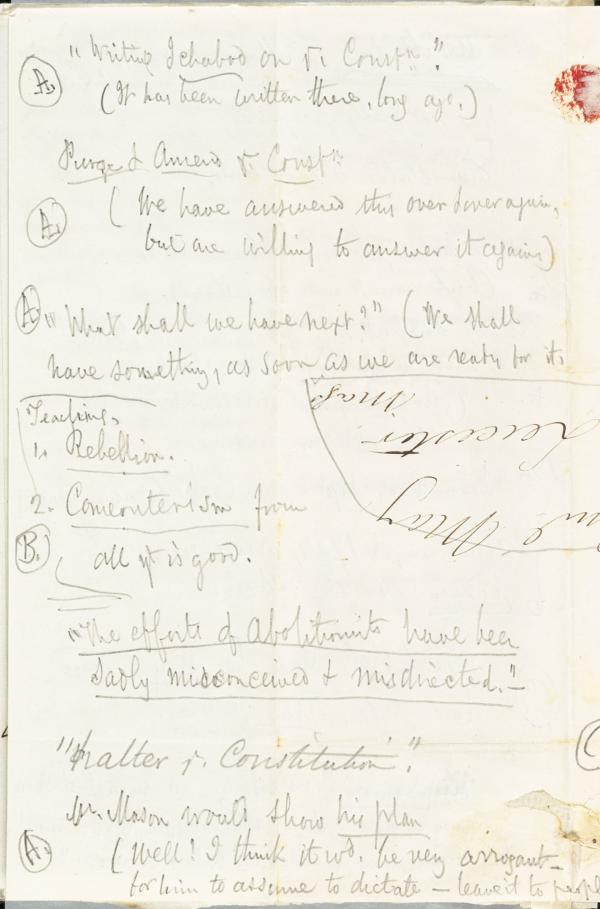 "Writing Ichabod on ye. Constn."?
A.
(It has been written there, long ago.)
Purge & Amend ye Constn.
A.
(We have answered this over & over again,
but are willing to answer it again)
A. "What shall we have next?" (We shall
have something, as soon as we are ready for it.
Teaching.
1. Rebellion.
2. Comeouterism from
B.
all yt is good.
"The efforts of Abolitionists have been
sadly misconceived & misdirected."—
"alter ye. Constitution".
Mr. Mason would show his plan
A.
(Well! I think it wd. be very arrogant—
for him to assume to dictate — leave it to people
May
Leicester
Mass